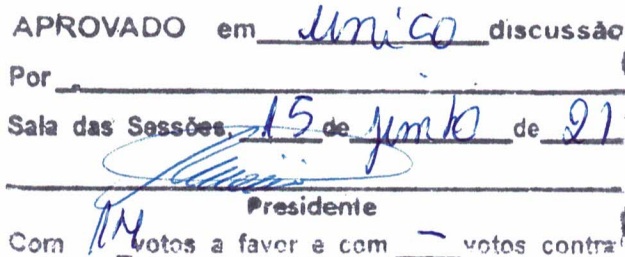 APROVADO em único discussão
Por
Sala das Sessões, 15 de junho de 21
Presidente
Com 14 votos a favor e com - votos contra